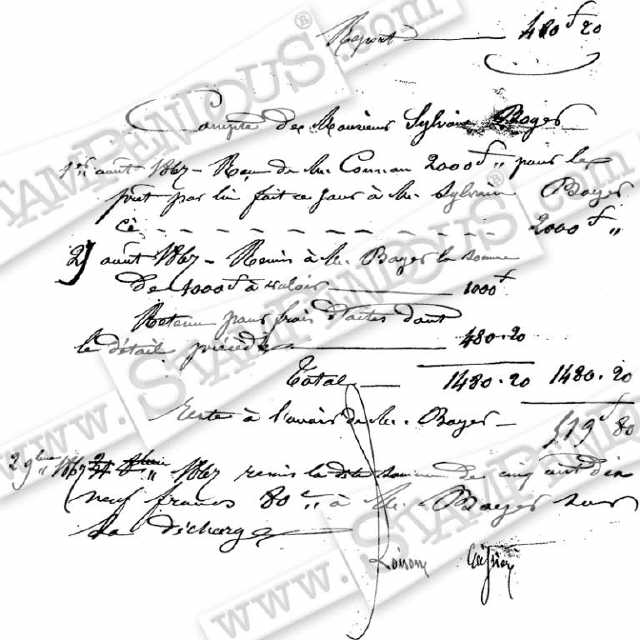 Report 480 f 20
Compte de Monsieur Sylvain Boyer
1er août 1867 - Reçu de Mr. 2000 f " pour le
prêt par lui fait ce jour à Mr. Sylvain Boyer
ci - - - - - - - - - 2000 f "
29 août 1867 - Remis à Mr. Boyer la somme
de 1000 f à valoir 1000 f
Retenu pour frais d'actes dont
le détail précède 480.20
Total 1480.20 1480.20
reste à l'avoir de Mr. Boyer 519 f 80
2 9bre 1867 1867 remis la dite somme de cinq cent dix
neuf francs 80 c à Mr. Boyer sur
sa décharge
STAMPENDOUS®
www.STAMPENDOUS